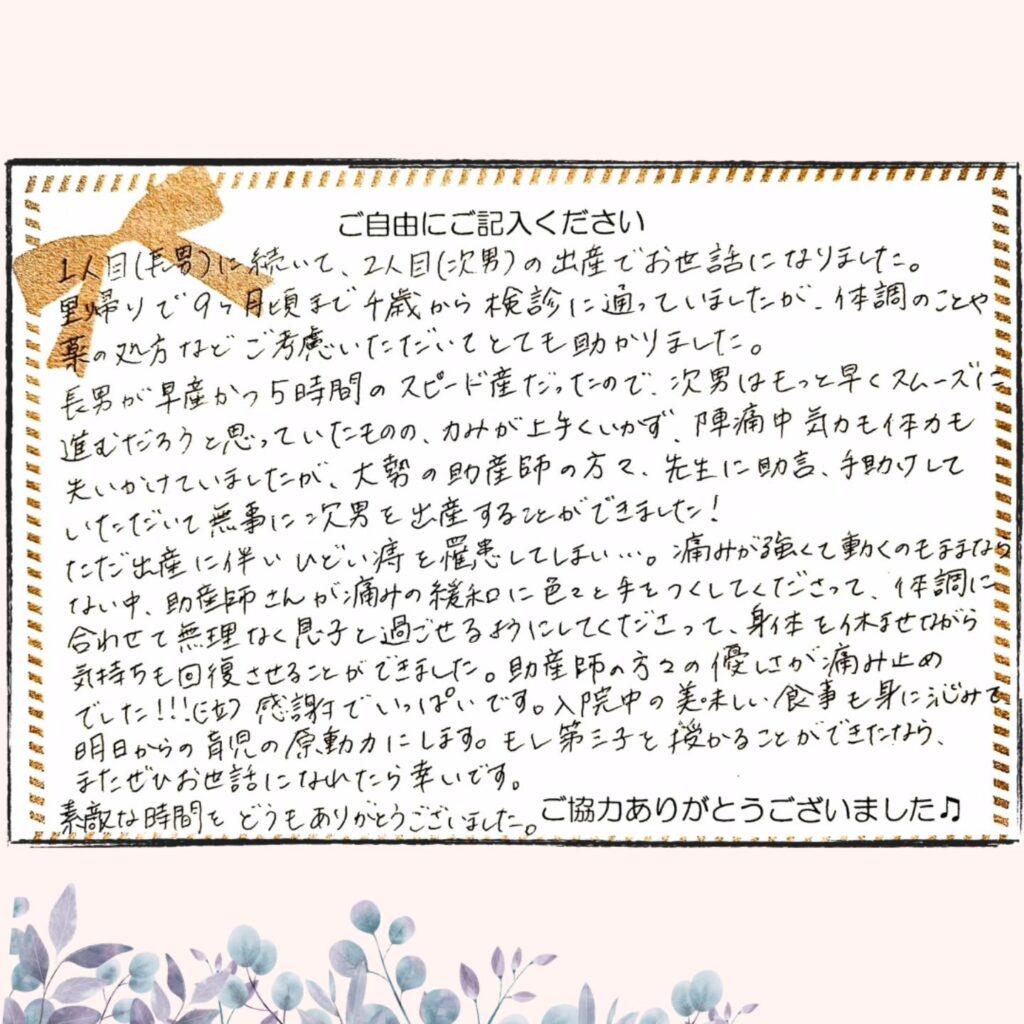 ご自由にご記入ください
1人目(長男)に続いて、2人目(次男)の出産でお世話になりました。
里帰りで9ヶ月頃まで千歳から検診に通っていましたが、体調のことや
薬の処方などご考慮いただいてとても助かりました。
長男が早産かつ5時間のスピード産だったので、次男はもっと早くスムーズに
進むだろうと思っていたものの、力みが上手くいかず、陣痛中気力も体力も
失いかけていましたが、大勢の助産師の方々、先生に助言、手助けして
いただいて無事に次男を出産することができました!
ただ出産に伴いひどい痔を罹患してしまい…。痛みが強くて動くのもままなら
ない中、助産師さんが痛みの緩和に色々と手をつくしてくださって、体調に
合わせて無理なく息子と過ごせるようにしてくださって、身体を休ませながら
気持ちも回復させることができました。助産師の方々の優しさが痛み止め
でした!!!(泣)感謝でいっぱいです。入院中の美味しい食事も身に沁みて
明日からの育児の原動力にします。もし第三子を授かることができたなら、
またぜひお世話になれたら幸いです。
素敵な時間をどうもありがとうございました。
ご協力ありがとうございました♫